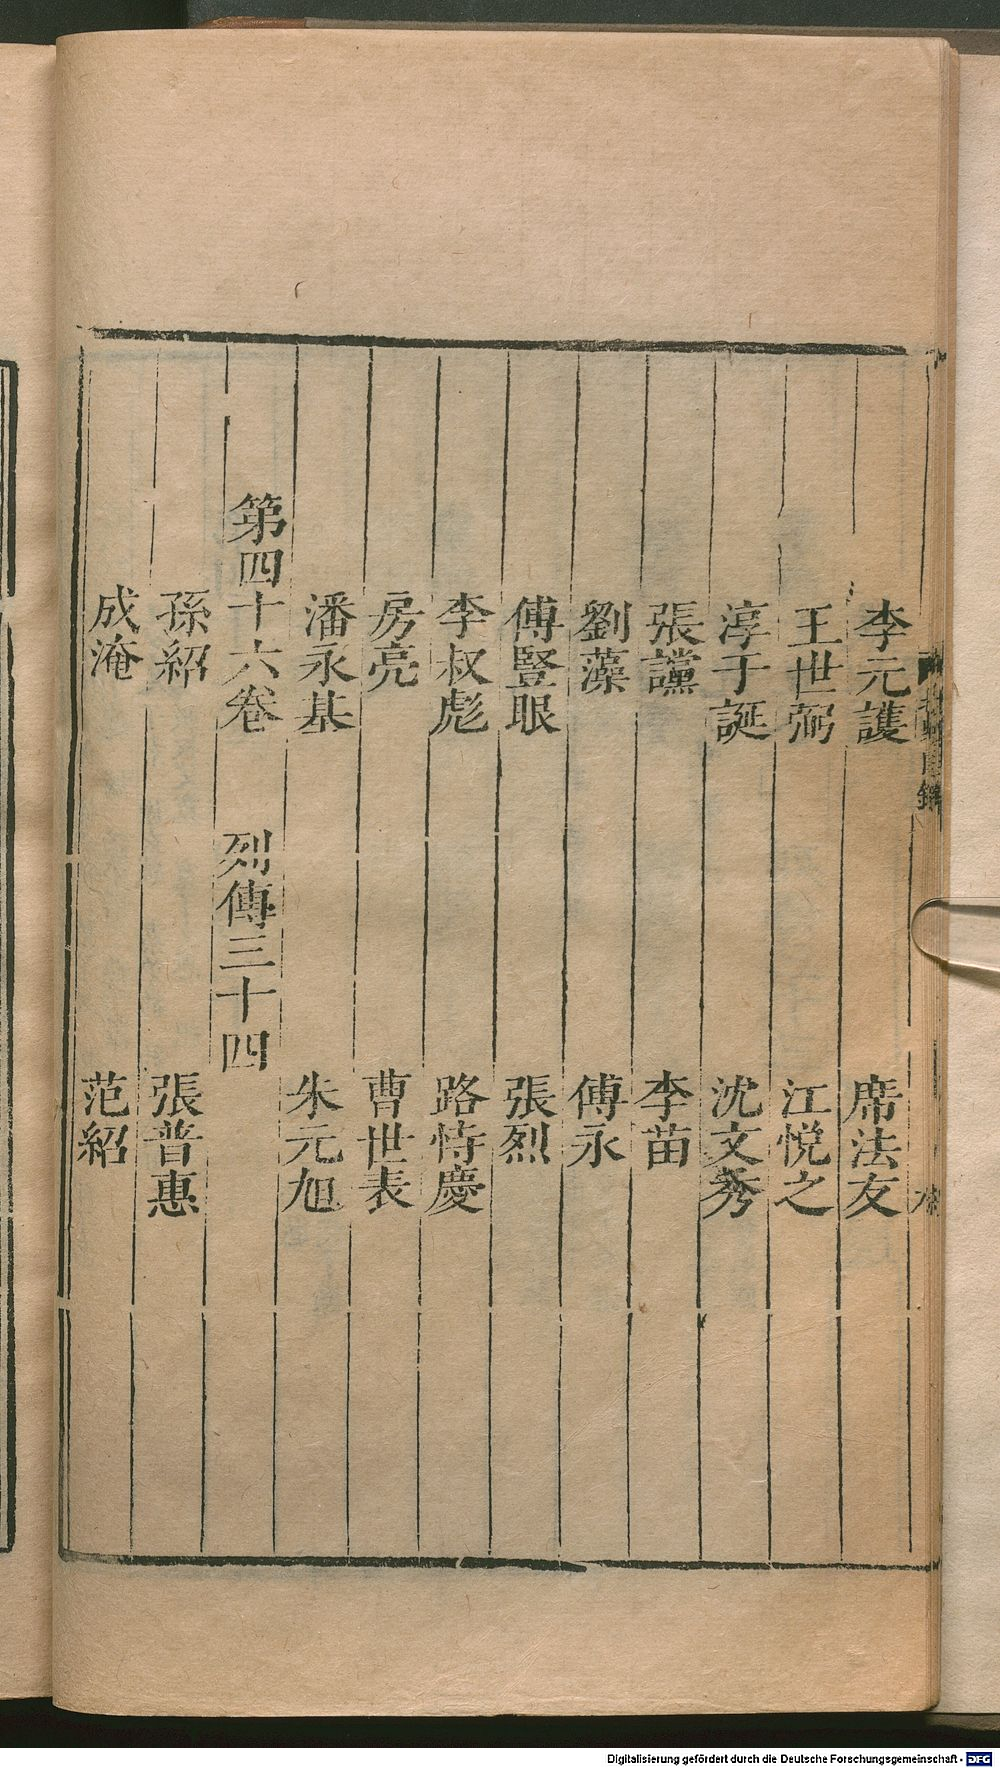 李元護 席法友
王世弼 江悅之
淳于誕 沈文秀
張讜 李苗
劉藻 傅永
傅豎眼 張烈
李叔彪 路恃慶
房亮 曹世表
潘永基 朱元旭
第四十六卷 列傳三十四
孫紹 張普惠
成淹 范紹
Digitalisierung gefördert durch die Deutsche Forschungsgemeinschaft - DFG